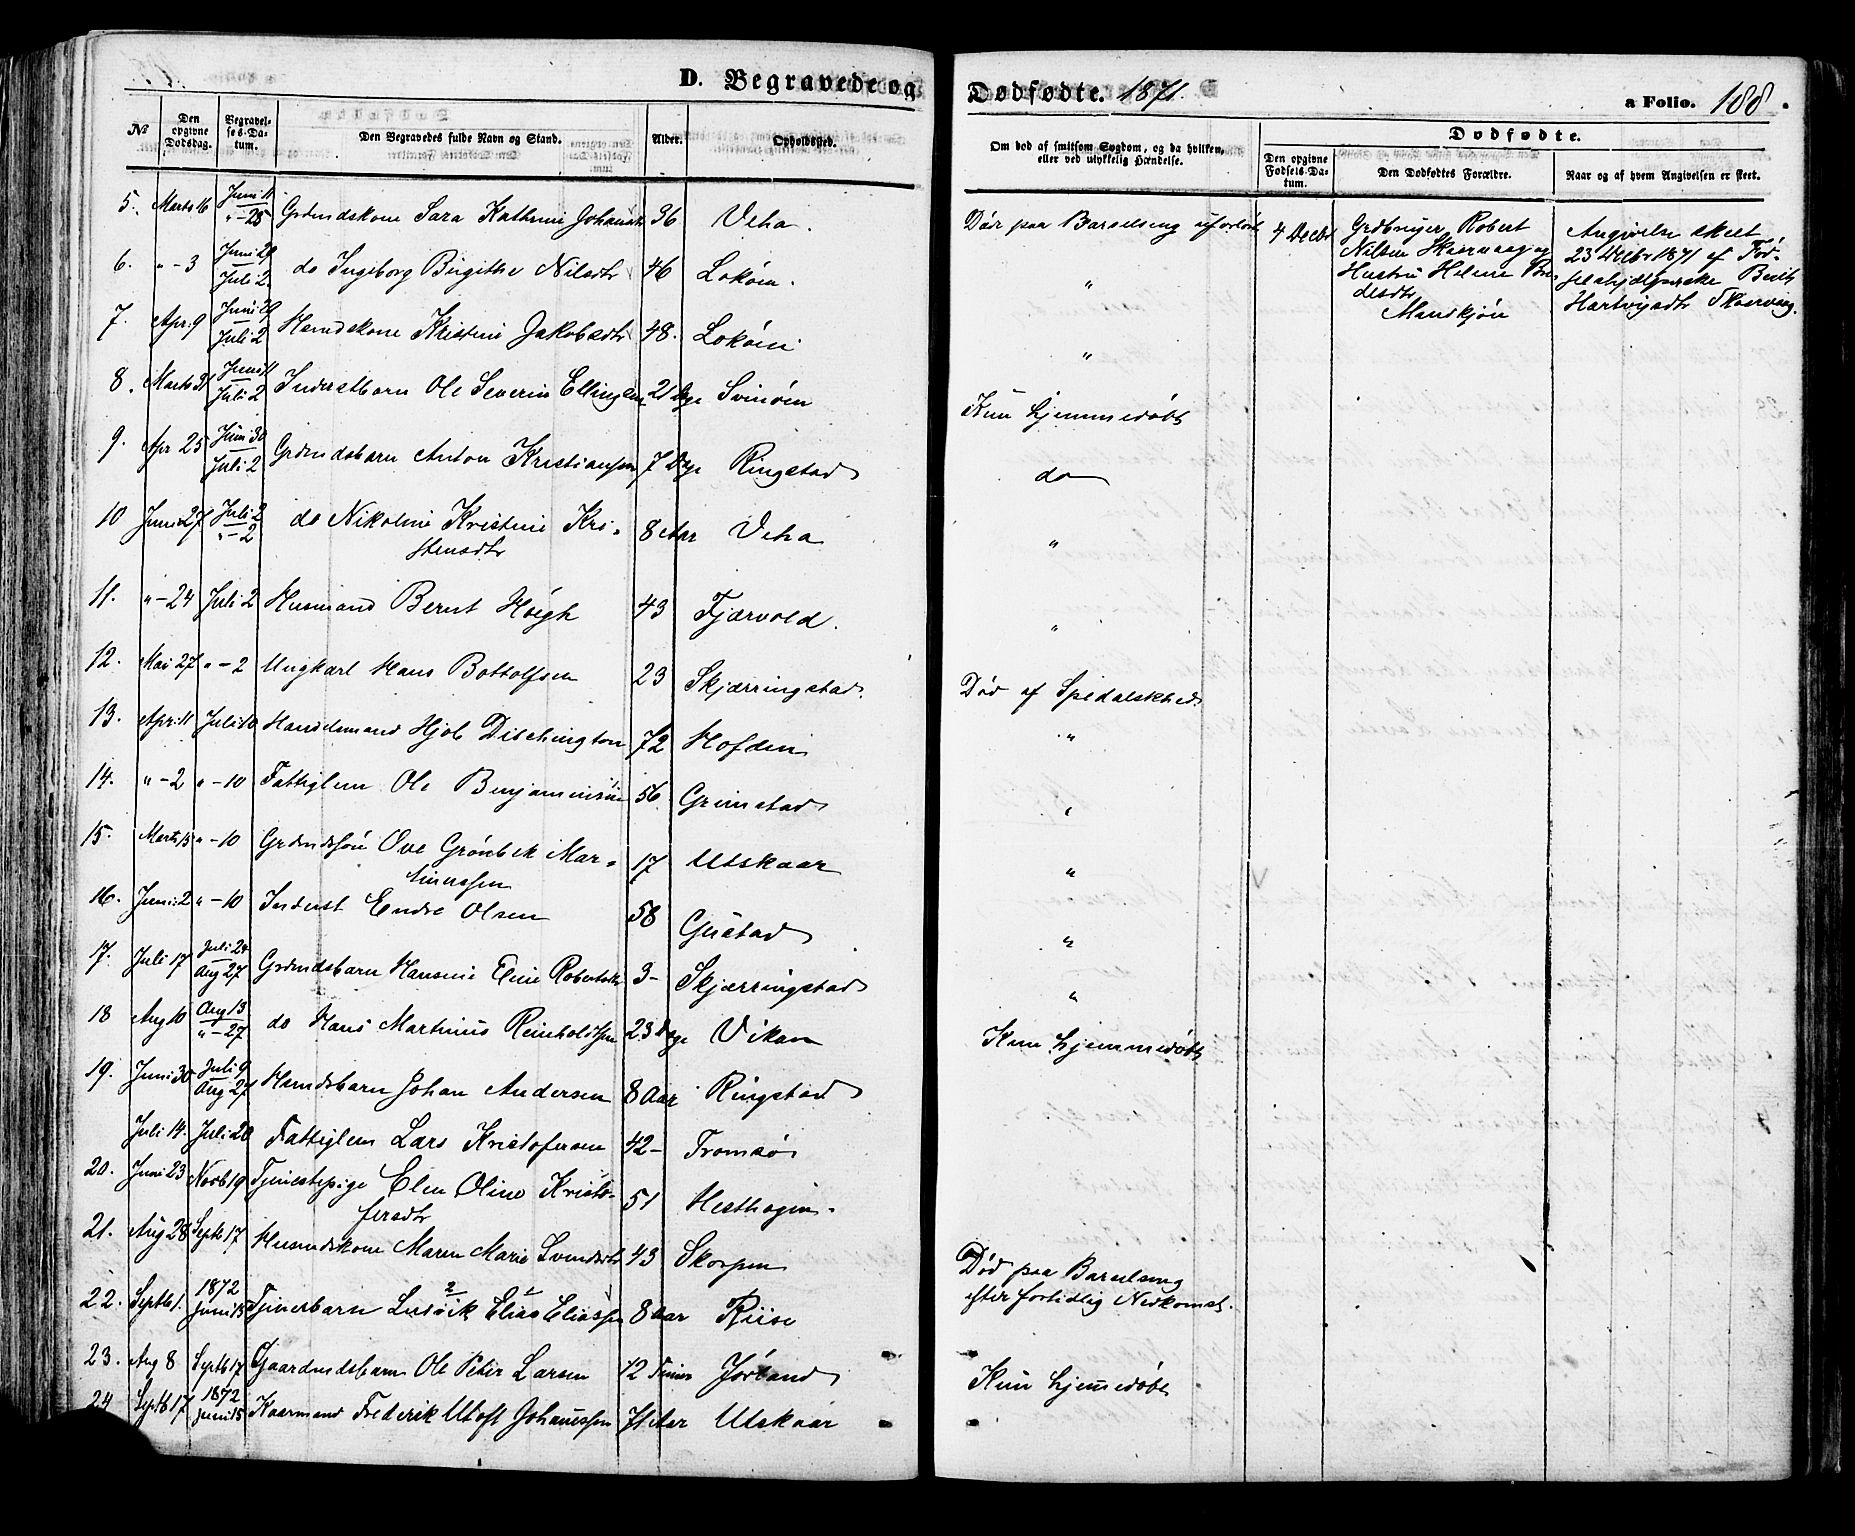 D. Begravede og Dødfødte. 1871. a Folio. 188.
No
Den opgivne Dødsdag.
Begravelses-Datum.
Den Begravedes fulde Navn og Stand.
Alder.
Opholdssted.
Om død af smitsom Sygdom, og da hvilken, eller ved ulykkelig Hændelse.
Dødfødte.
Den opgivne Fødsels-Datum.
Den Dødfødtes Forældre.
Naar og af hvem Angivelsen er skeet.
5. Marts 16 Juni 11 "-25 Grdmdskone Sara Kathrine Johansdtr 36 Veha. Død paa Barselseng uforløst
6. "-3 Juni 29 Juli 2 do Ingeborg Birgithe Nilsdtr 46 Lokøen. "
7. Apr. 9 Juni 29 Juli 2 Hsmdskone Kristine Jakobsdtr 48. Lokøen "
8. Marts 31 Juni 11 Juli 2 Inderstbarn Ole Severin Ellingsen 21 Dge Svinøen Kun hjemmedøbt
9. Apr 25 Juni 30 Juli 2 Grdmdsbarn Anton Kristiansen 7 Dge Ringstad do
10 Juni 27 Juli 2 "-2 do Nikoline Kristine Kri-
stensdtr 8 Aar Veha "
11. "-24 Juli 2 Husmand Bernt Høigh 43 Fjærvold. "
12. Mai 27 "-2 Ungkarl Hans Bottolfsen 23 Skjærringstad. Død af Spedalskhed
13. Apr. 11 Juli 10 Handelsmand Hjob Dischington 72 Hofden "
14. "-2 "-10 Fattiglem Ole Benjaminsen 56 Grimstad "
15. Marts 15 "-10 Grdmdssøn Ove Grønbek Mar-
tinussen 17 Utskaar "
16. Juni 2 "-10 Inderst Endre Olsen 58 Gustad "
17. Juli 17 Juli 24 Aug 27 Grdmdsbarn Hansine Eline Robertsdtr 3- Skjærringstad "
18 Aug 10 Aug 13 "-27 do Hans Martinus Reinholdtsen 23 Dge Vikan Kun hjemmedøbt
19. Juni 30 Juli 9 Aug 27 Hsmdsbarn Johan Andersen 8 Aar Ringstad
Juli 14. Juli 20 Fattiglem Lars Kristofersen 42- Tromsø
20. Juni 23 Novb 19 Tjenestepige Elen Oline Kristo-
fersdtr 51 Hesthagen.
21. Aug 28 Septb 17 Husmdskone Maren Marie Svendsdtr 43 Skorpen Død paa Barselseng
efter fortidlig Nedkomst.
22. Septb 1. 1872 Juni 15 Tjenerbarn Ludvik 2 Elias 1 Eliassen 8 Aar Riise
23. Aug 8 Septb 17 Gaardmdsbarn Ole Peter Larsen 12 Timer Jørland Kun hjemmedøbt
24 Septb 17 1872 Juni 15 Kaarmand Fredrik Utoft Johannssen 71 Aar Utskaar
4 Decbr
Grdbruger Robert
Nilsen Skærvaag og
Hustru Helene
desdtr
Manskjøn
Angivelse skeet
23 Decbr 1871 af Fød-
selshjælperske Berith
Hartvigsdtr Skærvaag.